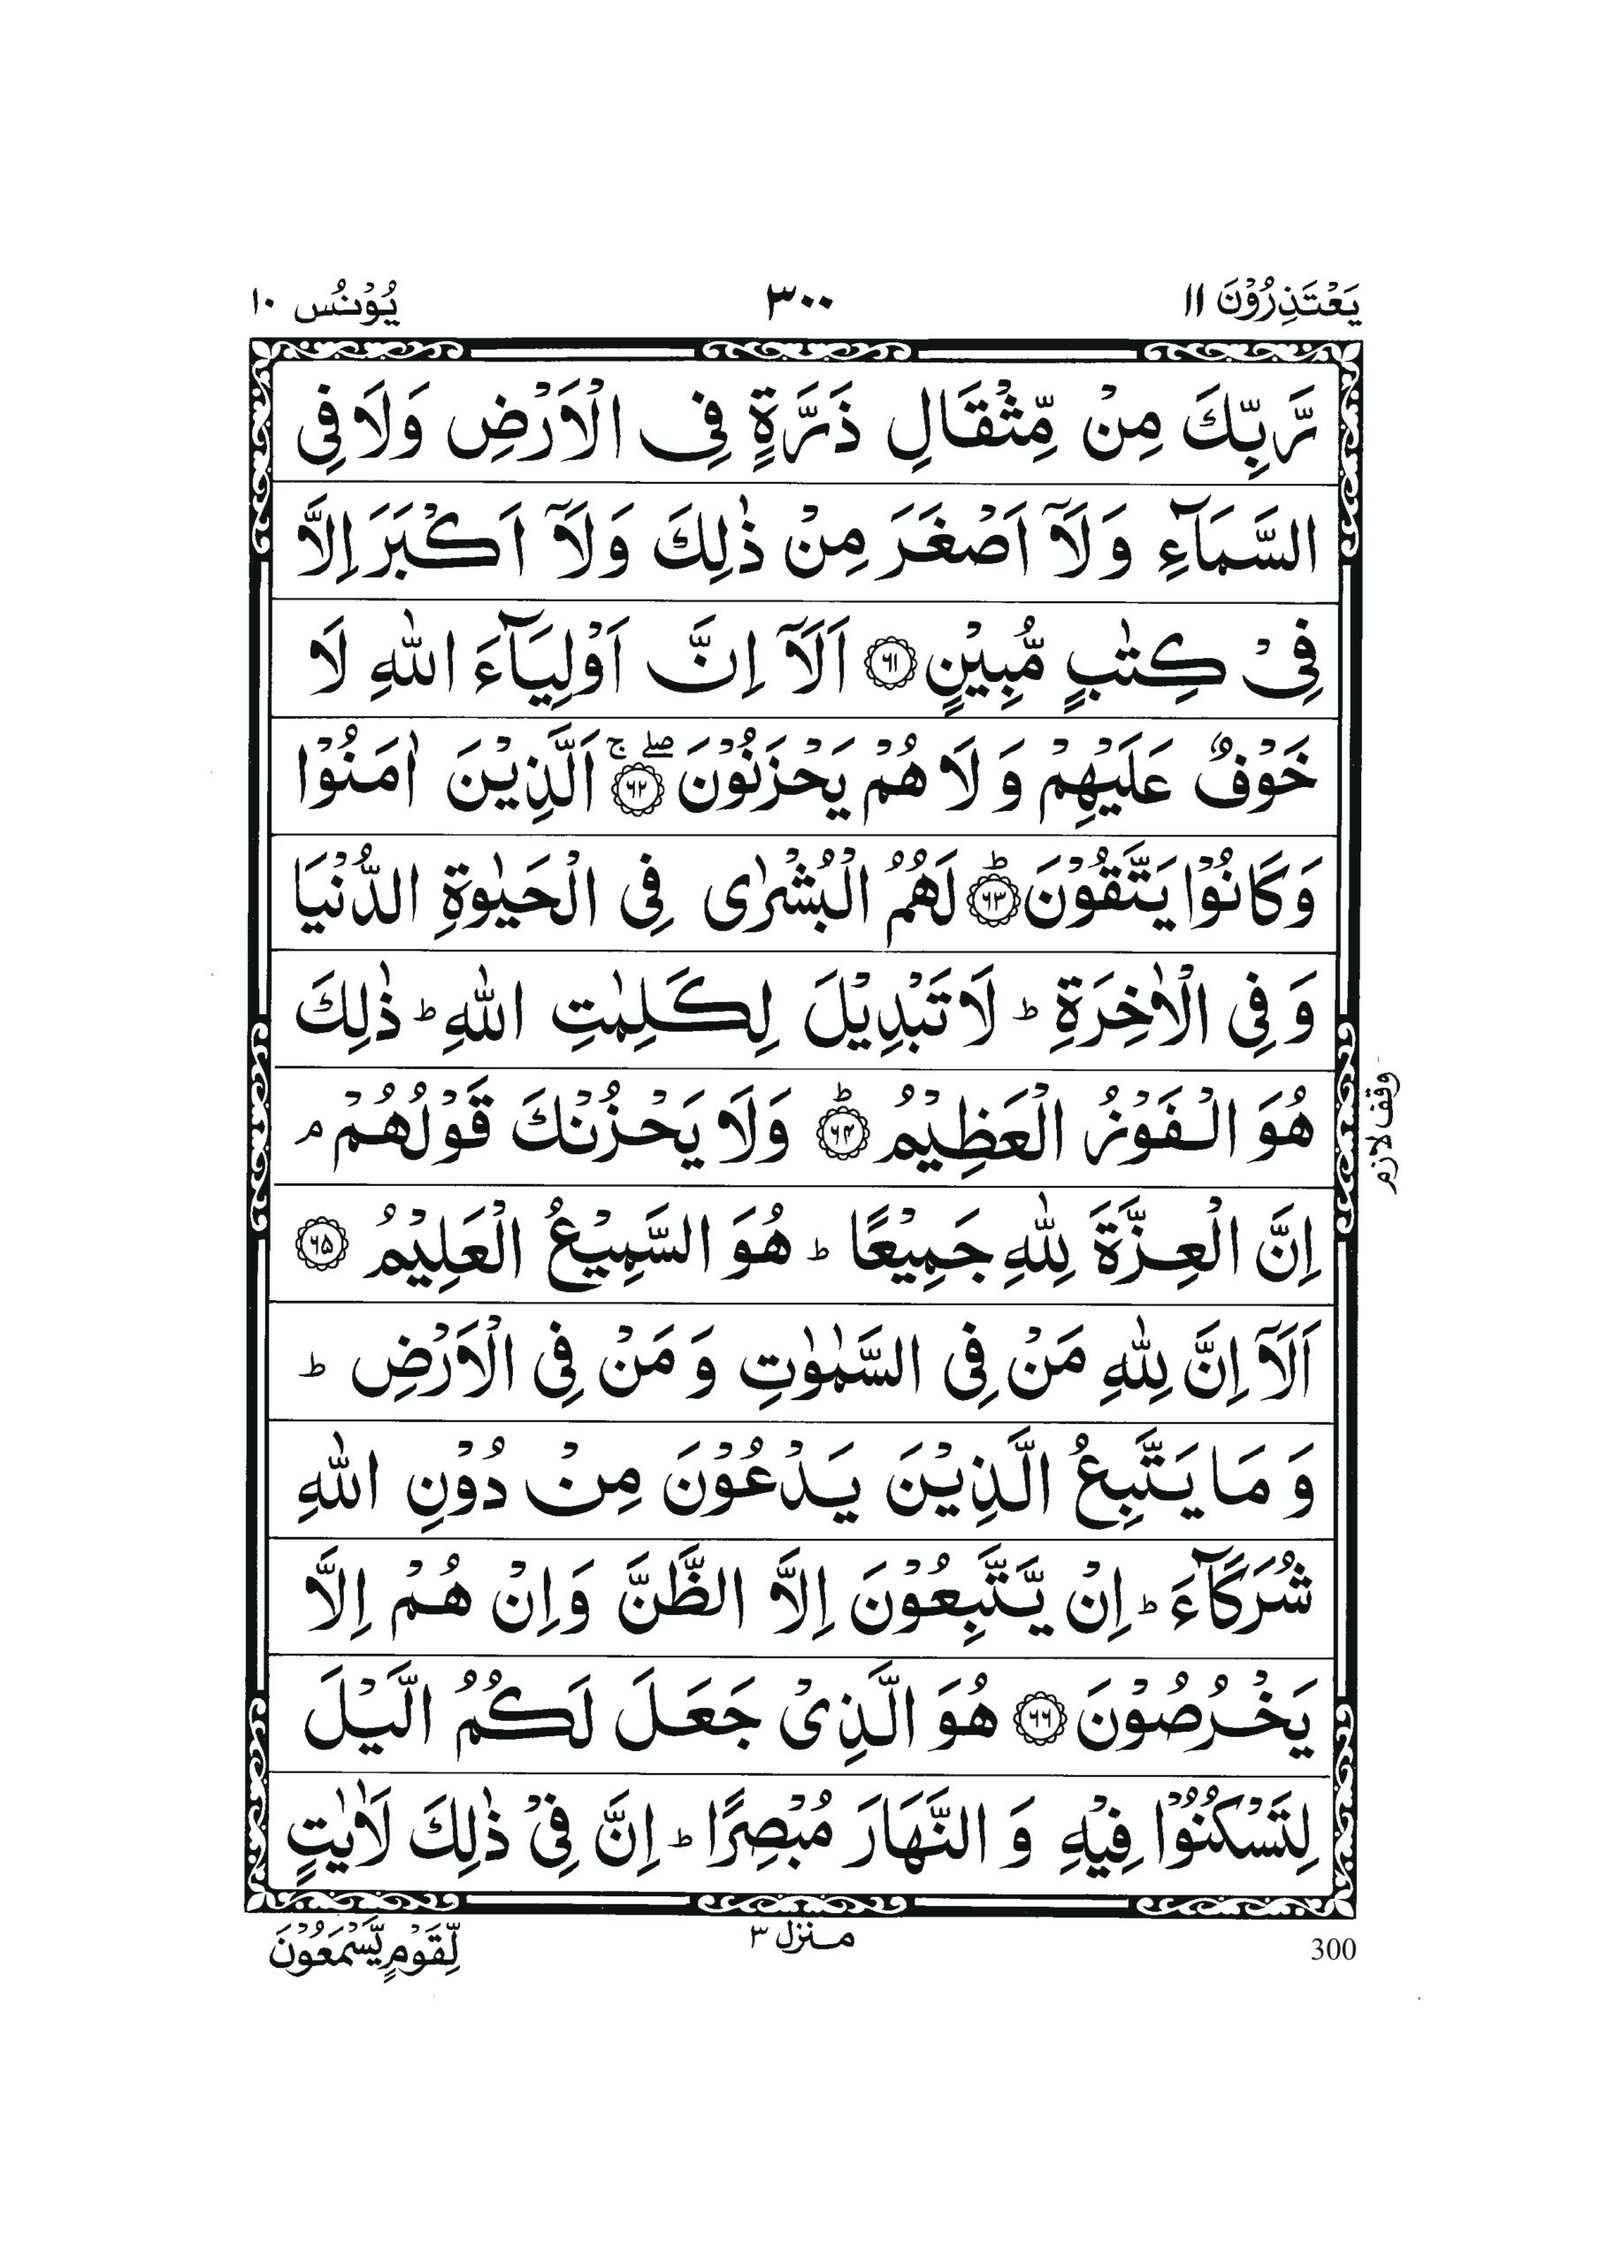 يَعْتَذِرُوْنَ ١١ ٣٠٠ يُوْنُس ١٠
رَّبِّكَ مِنْ مِّثْقَالِ ذَرَّةٍ فِى الْاَرْضِ وَلَا فِى
السَّمَآءِ وَلَآ اَصْغَرَ مِنْ ذٰلِكَ وَلَآ اَكْبَرَ اِلَّا
فِىْ كِتٰبٍ مُّبِيْنٍ ﴿۶۱﴾ اَلَآ اِنَّ اَوْلِيَآءَ اللّٰهِ لَا
خَوْفٌ عَلَيْهِمْ وَ لَا هُمْ يَحْزَنُوْنَ ۖۚ ﴿۶۲﴾ اَلَّذِيْنَ اٰمَنُوْا
وَ كَانُوْا يَتَّقُوْنَ ؕ ﴿۶۳﴾ لَهُمُ الْبُشْرٰى فِى الْحَيٰوةِ الدُّنْيَا
وَ فِى الْاٰخِرَةِ ؕ لَا تَبْدِيْلَ لِكَلِمٰتِ اللّٰهِ ؕ ذٰلِكَ
هُوَ الْفَوْزُ الْعَظِيْمُ ؕ ﴿۶۴﴾ وَلَا يَحْزُنْكَ قَوْلُهُمْ ۘ
وقف لازم
اِنَّ الْعِزَّةَ لِلّٰهِ جَمِيْعًا ؕ هُوَ السَّمِيْعُ الْعَلِيْمُ ﴿۶۵﴾
اَلَآ اِنَّ لِلّٰهِ مَنْ فِى السَّمٰوٰتِ وَ مَنْ فِى الْاَرْضِ ؕ
وَ مَا يَتَّبِعُ الَّذِيْنَ يَدْعُوْنَ مِنْ دُوْنِ اللّٰهِ
شُرَكَآءَ ؕ اِنْ يَّتَّبِعُوْنَ اِلَّا الظَّنَّ وَاِنْ هُمْ اِلَّا
يَخْرُصُوْنَ ﴿۶۶﴾ هُوَ الَّذِىْ جَعَلَ لَكُمُ الَّيْلَ
لِتَسْكُنُوْا فِيْهِ وَ النَّهَارَ مُبْصِرًا ؕ اِنَّ فِىْ ذٰلِكَ لَاٰيٰتٍ
300 منزل ٣ لِّقَوْمٍ يَّسْمَعُوْنَ